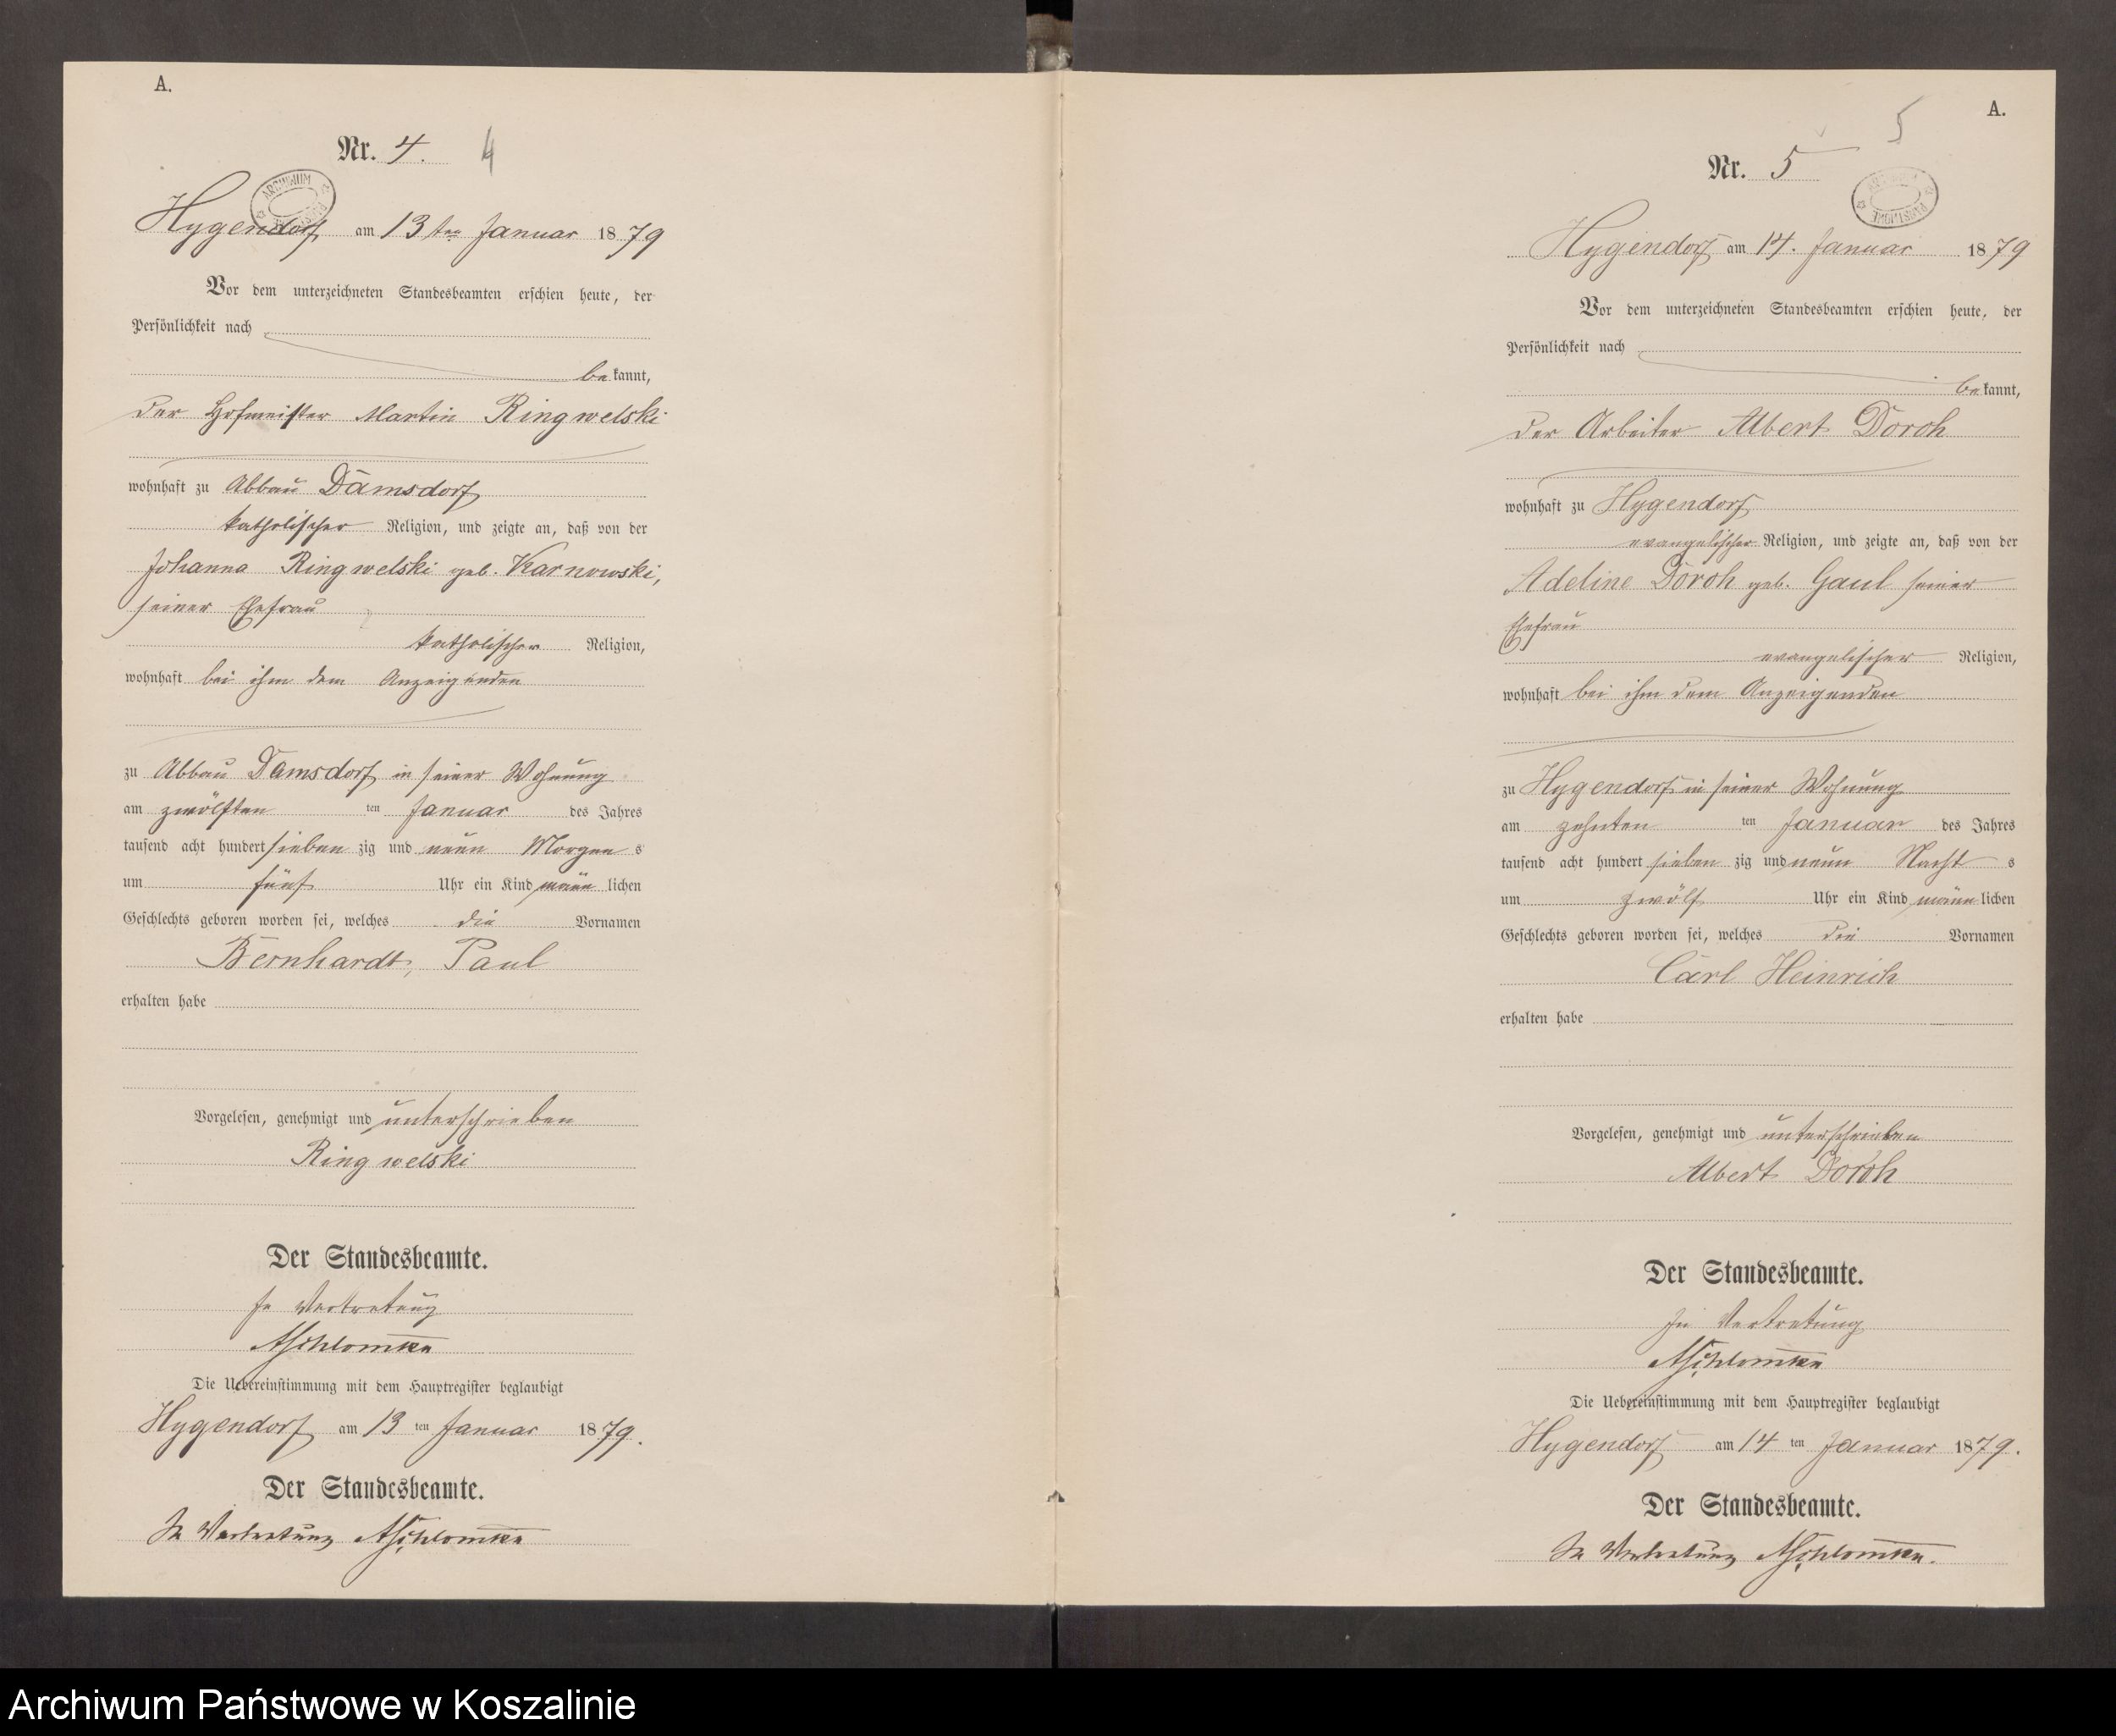 A.
Nr. 4. 4
ARCHIWUM PAŃSTWOWE
Hygendorf am 13ten Januar 1879
Vor dem unterzeichneten Standesbeamten erschien heute, der
Persönlichkeit nach
bekannt,
der Hofmeister Martin Ringwelski
wohnhaft zu Abbau Damsdorf
katholischer Religion, und zeigte an, daß von der
Johanna Ringwelski geb. Karnowski,
seiner Ehefrau
katholischer Religion,
wohnhaft bei ihm dem Anzeigenden
zu Abbau Damsdorf in seiner Wohnung
am zwölften ten Januar des Jahres
tausend acht hundert sieben zig und neun Morgen s
um fünf Uhr ein Kind männ lichen
Geschlechts geboren worden sei, welches die Vornamen
Bernhardt, Paul
erhalten habe
Vorgelesen, genehmigt und unterschrieben
Ringwelski
Der Standesbeamte.
In Vertretung
Die Uebereinstimmung mit dem Hauptregister beglaubigt
Hygendorf am 13 ten Januar 1879.
Der Standesbeamte.
In Vertretung
A.
5
Nr. 5
ARCHIWUM PAŃSTWOWE
Hygendorf am 14. Januar 1879
Vor dem unterzeichneten Standesbeamten erschien heute, der
Persönlichkeit nach
bekannt,
der Arbeiter Albert Doroh
wohnhaft zu Hygendorf
evangelischer Religion, und zeigte an, daß von der
Adeline Doroh geb. Gaul seiner
Ehefrau
evangelischer Religion,
wohnhaft bei ihm dem Anzeigenden
zu Hygendorf in seiner Wohnung
am zehnten ten Januar des Jahres
tausend acht hundert sieben zig und neun Nacht s
um zwölf Uhr ein Kind männ lichen
Geschlechts geboren worden sei, welches die Vornamen
Carl Heinrich
erhalten habe
Vorgelesen, genehmigt und unterschrieben
Albert Doroh
Der Standesbeamte.
In Vertretung
Die Uebereinstimmung mit dem Hauptregister beglaubigt
Hygendorf am 14 ten Januar 1879.
Der Standesbeamte.
In Vertretung
Archiwum Państwowe w Koszalinie